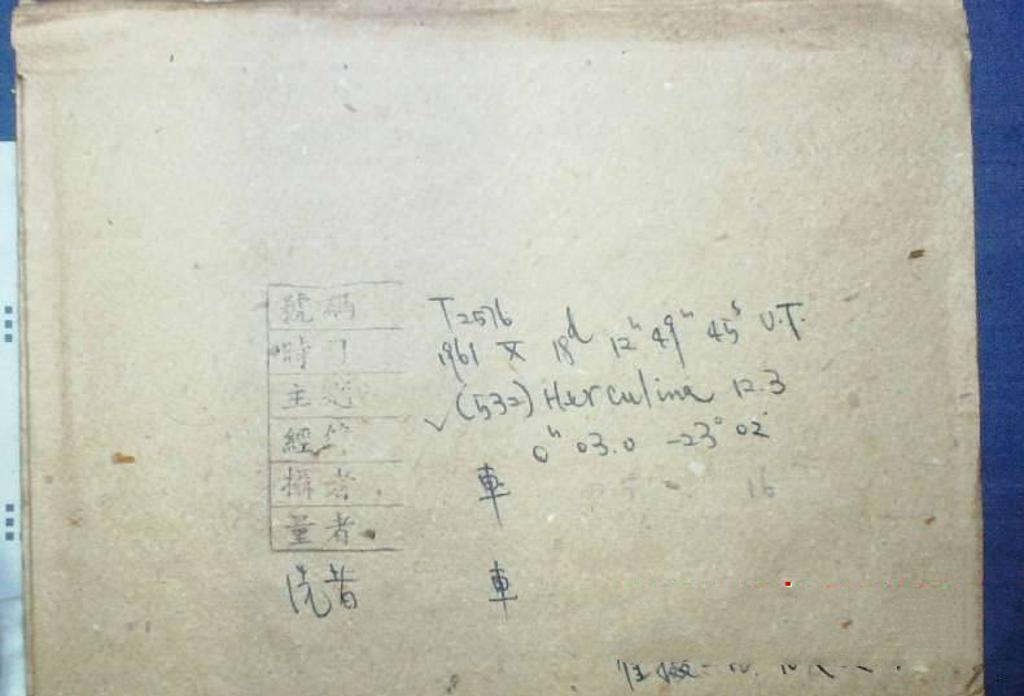 號碼 T2576
時 1961 X 18ᵈ 12ʰ 49ᵐ 45ˢ U.T.
主 (532) Herculina 12.3
經 ✓ 0ʰ 03.0 -23° 02'
攝者 車
16
量者
洗者 車